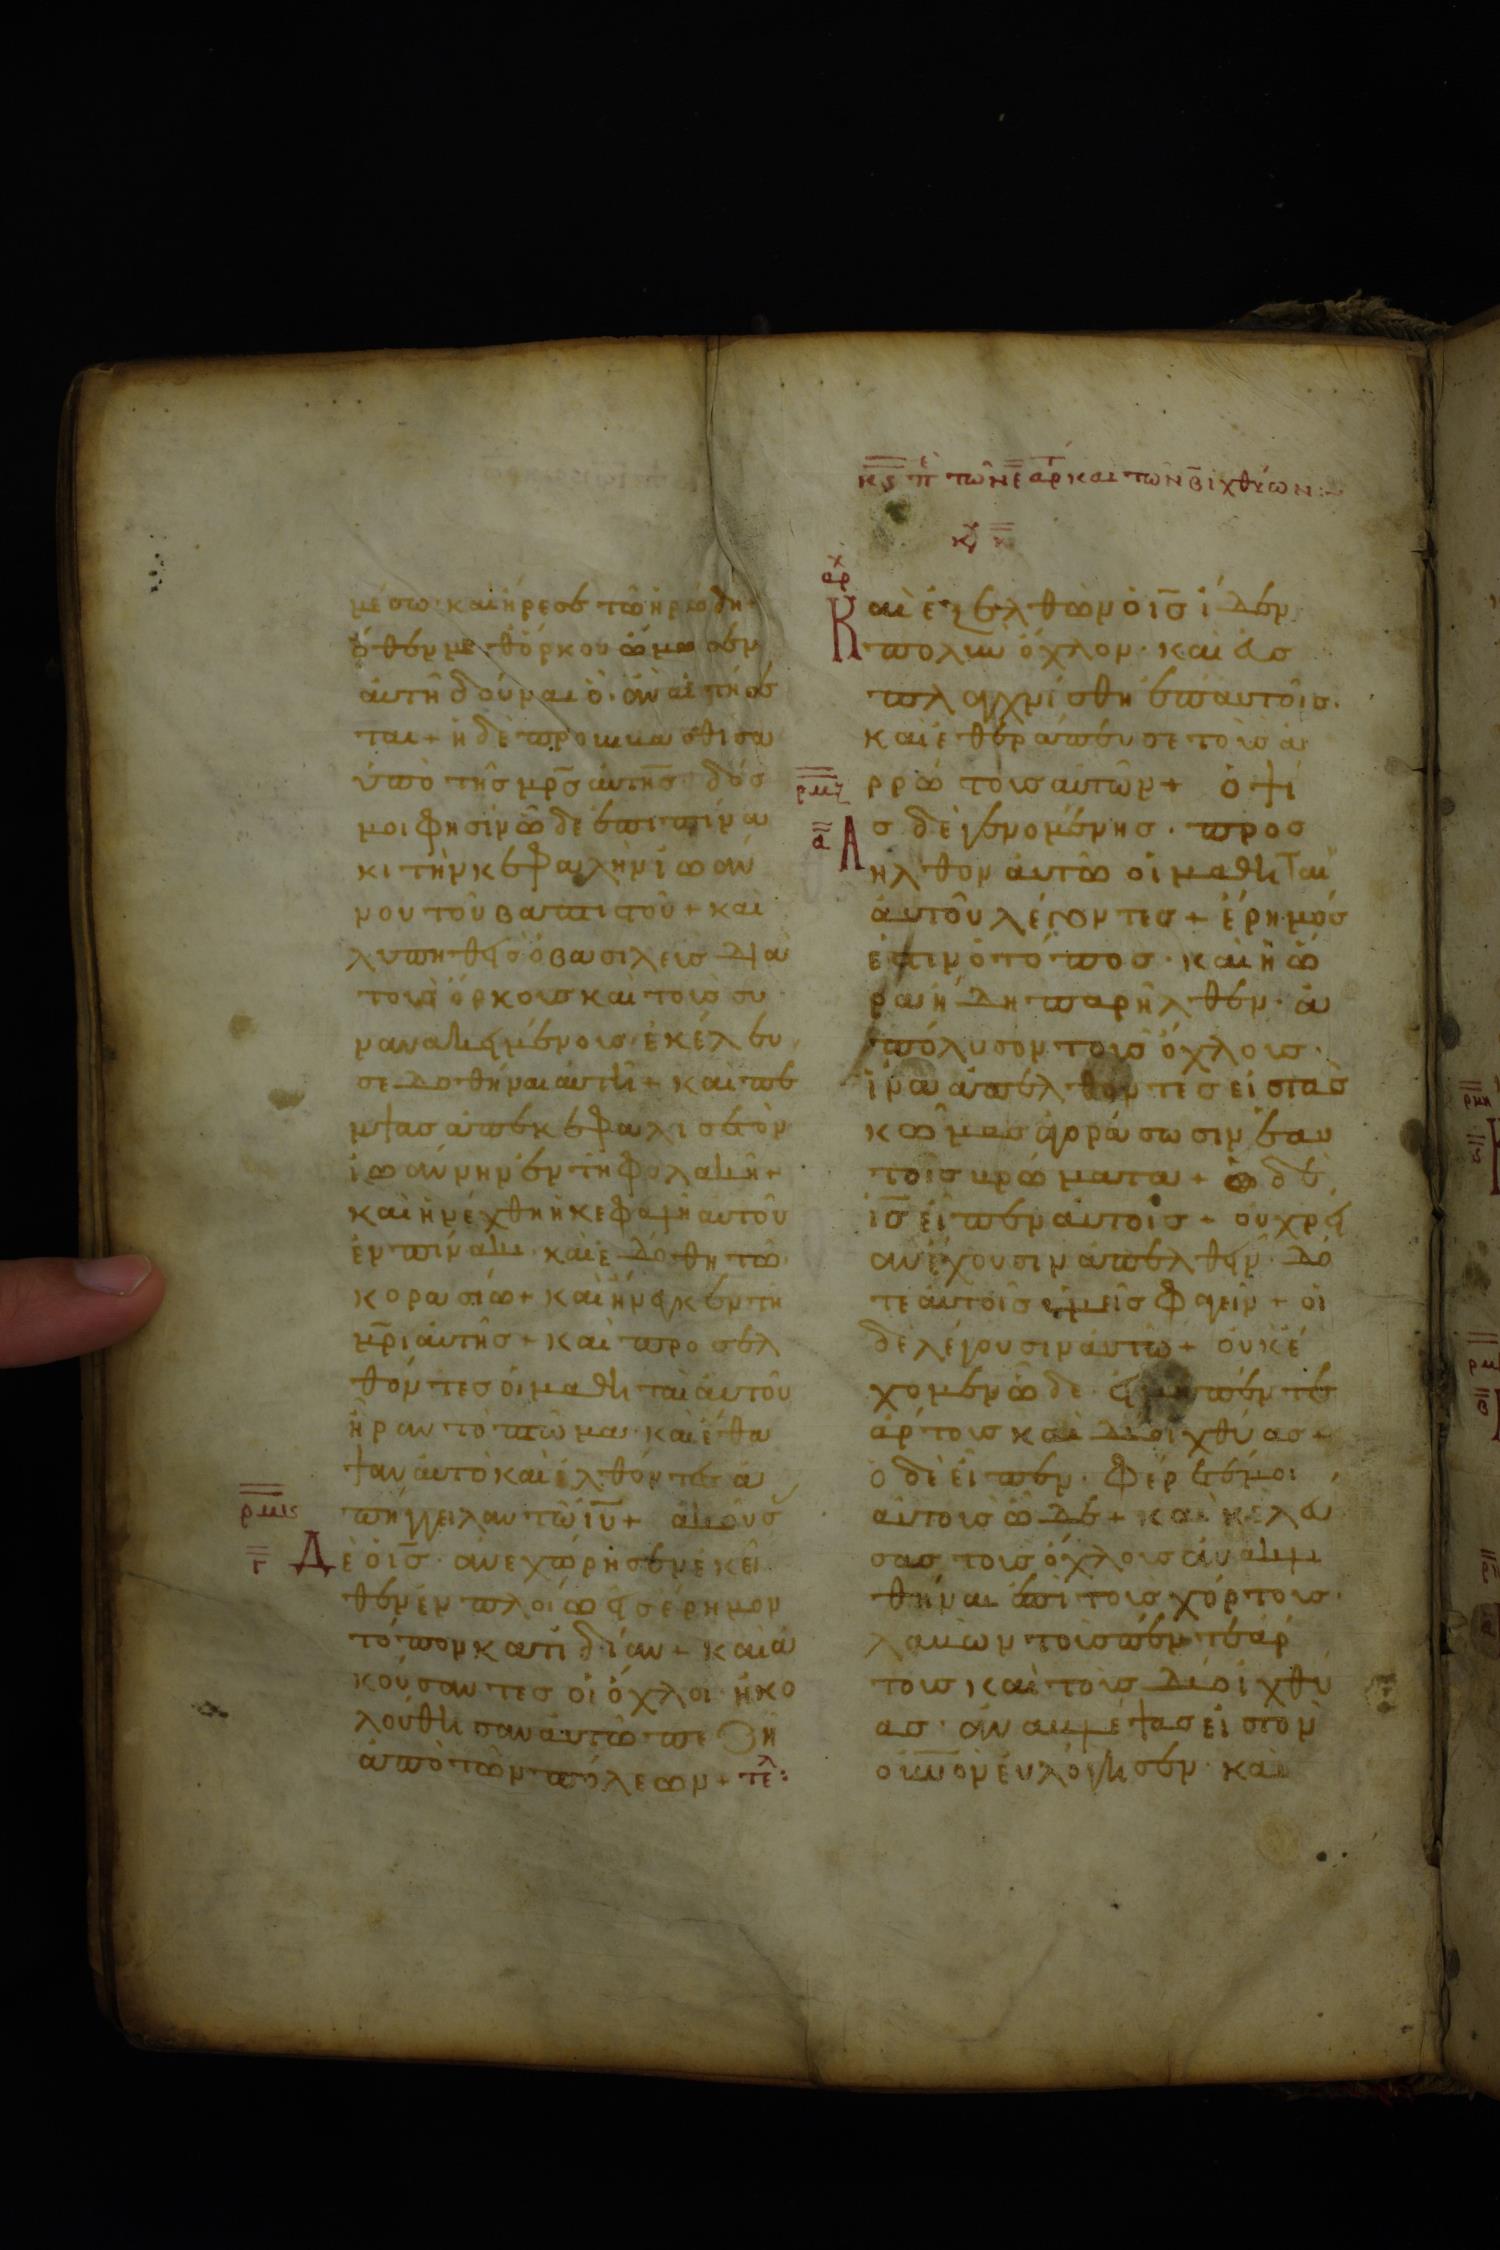 μέσω· καὶ ἤρεσε τῶ ἡρώδη·
ὅθεν μεθόρκου ὡμωσεν
ἀυτῆ δοῦναι ὁ· ἂν αἰτήσε
ται + ἡ δὲ προιωιασθισα
ὑπὸ τῆς μρ̅ς ἀυτῆς· δός
μοι φησὶν ὧδε ἐπι πίνα
κι τὴν κεφαλὴν ἰωάν
νου τοῦ βαπτιστοῦ + καὶ
λυπηθεὶς ὁ βασιλεις διὰ
τοὺς ὅρκους καὶ τοὺς συ
νανακειμένους· ἐκέλευ
σε δοθῆναι ἀυτῆ + καὶ πε
μψας ἀπεκεφαλισε τὸν
ἰωάννην ἐν τῆ φυλακῆ +
καὶ ἠνέχθη ἡ κεφαλὴ ἀυτοῦ
ἐν πίνακι· καὶ ἐδόθη τῶ
κορασίω + καὶ ἤνεγκεν τῆ
μρ̅ι ἀυτῆς + καὶ προσελ
θόντες ὁι μαθηταὶ ἀυτοῦ
ἦραν τὸ πτῶμα· καὶ ἔθα
ψαν ἀυτὸ καὶ ἐλθόντες ἀ
πήγγειλαν τῶ ἰυ̅ + ἀκούσ
ρμς
γ
Ας δὲ ὁ ις̅· ἀνεχώρησεν ἐκεῖ
θεν ἐν πλοίω εἰς ἔρημον
τόπον κατ ἰδίαν + καὶ ἀ
κούσαντες οἱ ὄχλοι· ἠκο
λούθησαν ἀυτῶ πεζῆ
ἀπὸ τῶν πόλεων + τε͂λ:
κς π̅ε τῶν ε̅ αρτ καὶ τῶν β̅ ἰχθύων:~
κυ κ
αρχ
Καὶ ἐξελθὼν ὁ ις̅ ἴδεν
πολὺν ὄχλον· καὶ ἐσ
πλαγχνίσθη ἐπ ἀυτοῖς·
καὶ ἐθεράπευσε τοὺς ἀρ
ρμζ
α
ρρώστους ἀυτῶν + ὀψί
Ας δὲ γενομένης· προσ
ῆλθον ἀυτῶ οἱ μαθηταὶ
ἀυτοῦ λέγοντες + ἔρημός
ἐστιν ὁ τόπος· καὶ ἡ ὥ
ρα ἤδη παρῆλθεν· ἀ
πόλυσον τοὺς ὄχλους·
ἵνα ἀπελθόντες εἰς τὰς
κώμας ἀγοράσωσιν ἑαυ
τοῖς βρώματα + ὁ δὲ
ις̅ εἶπεν αυτοῖς + ου χρεί
αν ἔχουσιν ἀπελθεῖν· δό
τε ἀυτοῖς ὑμεῖς φαγεῖν + οἱ
δὲ λέγουσιν ἀυτῶ + οὐκ ἔ
χομεν ὧδε· εἰ μη πέντε
ἄρτους καὶ δύο ἰχθύας +
ὁ δὲ εἶπεν· φέρετέ μοι
ἀυτοὺς ὧδε + καὶ κελεύ
σας τοὺς ὄχλους ἀνακλι
θῆναι ἐπὶ τοὺς χόρτους·
λαβων τοὺς πέντε ἄρ
τους καὶ τοὺς δύο ἰχθύ
ας· ἀναβλέψας εἰς τὸν
οὐνο̅ν ἐυλόγησεν· καὶ